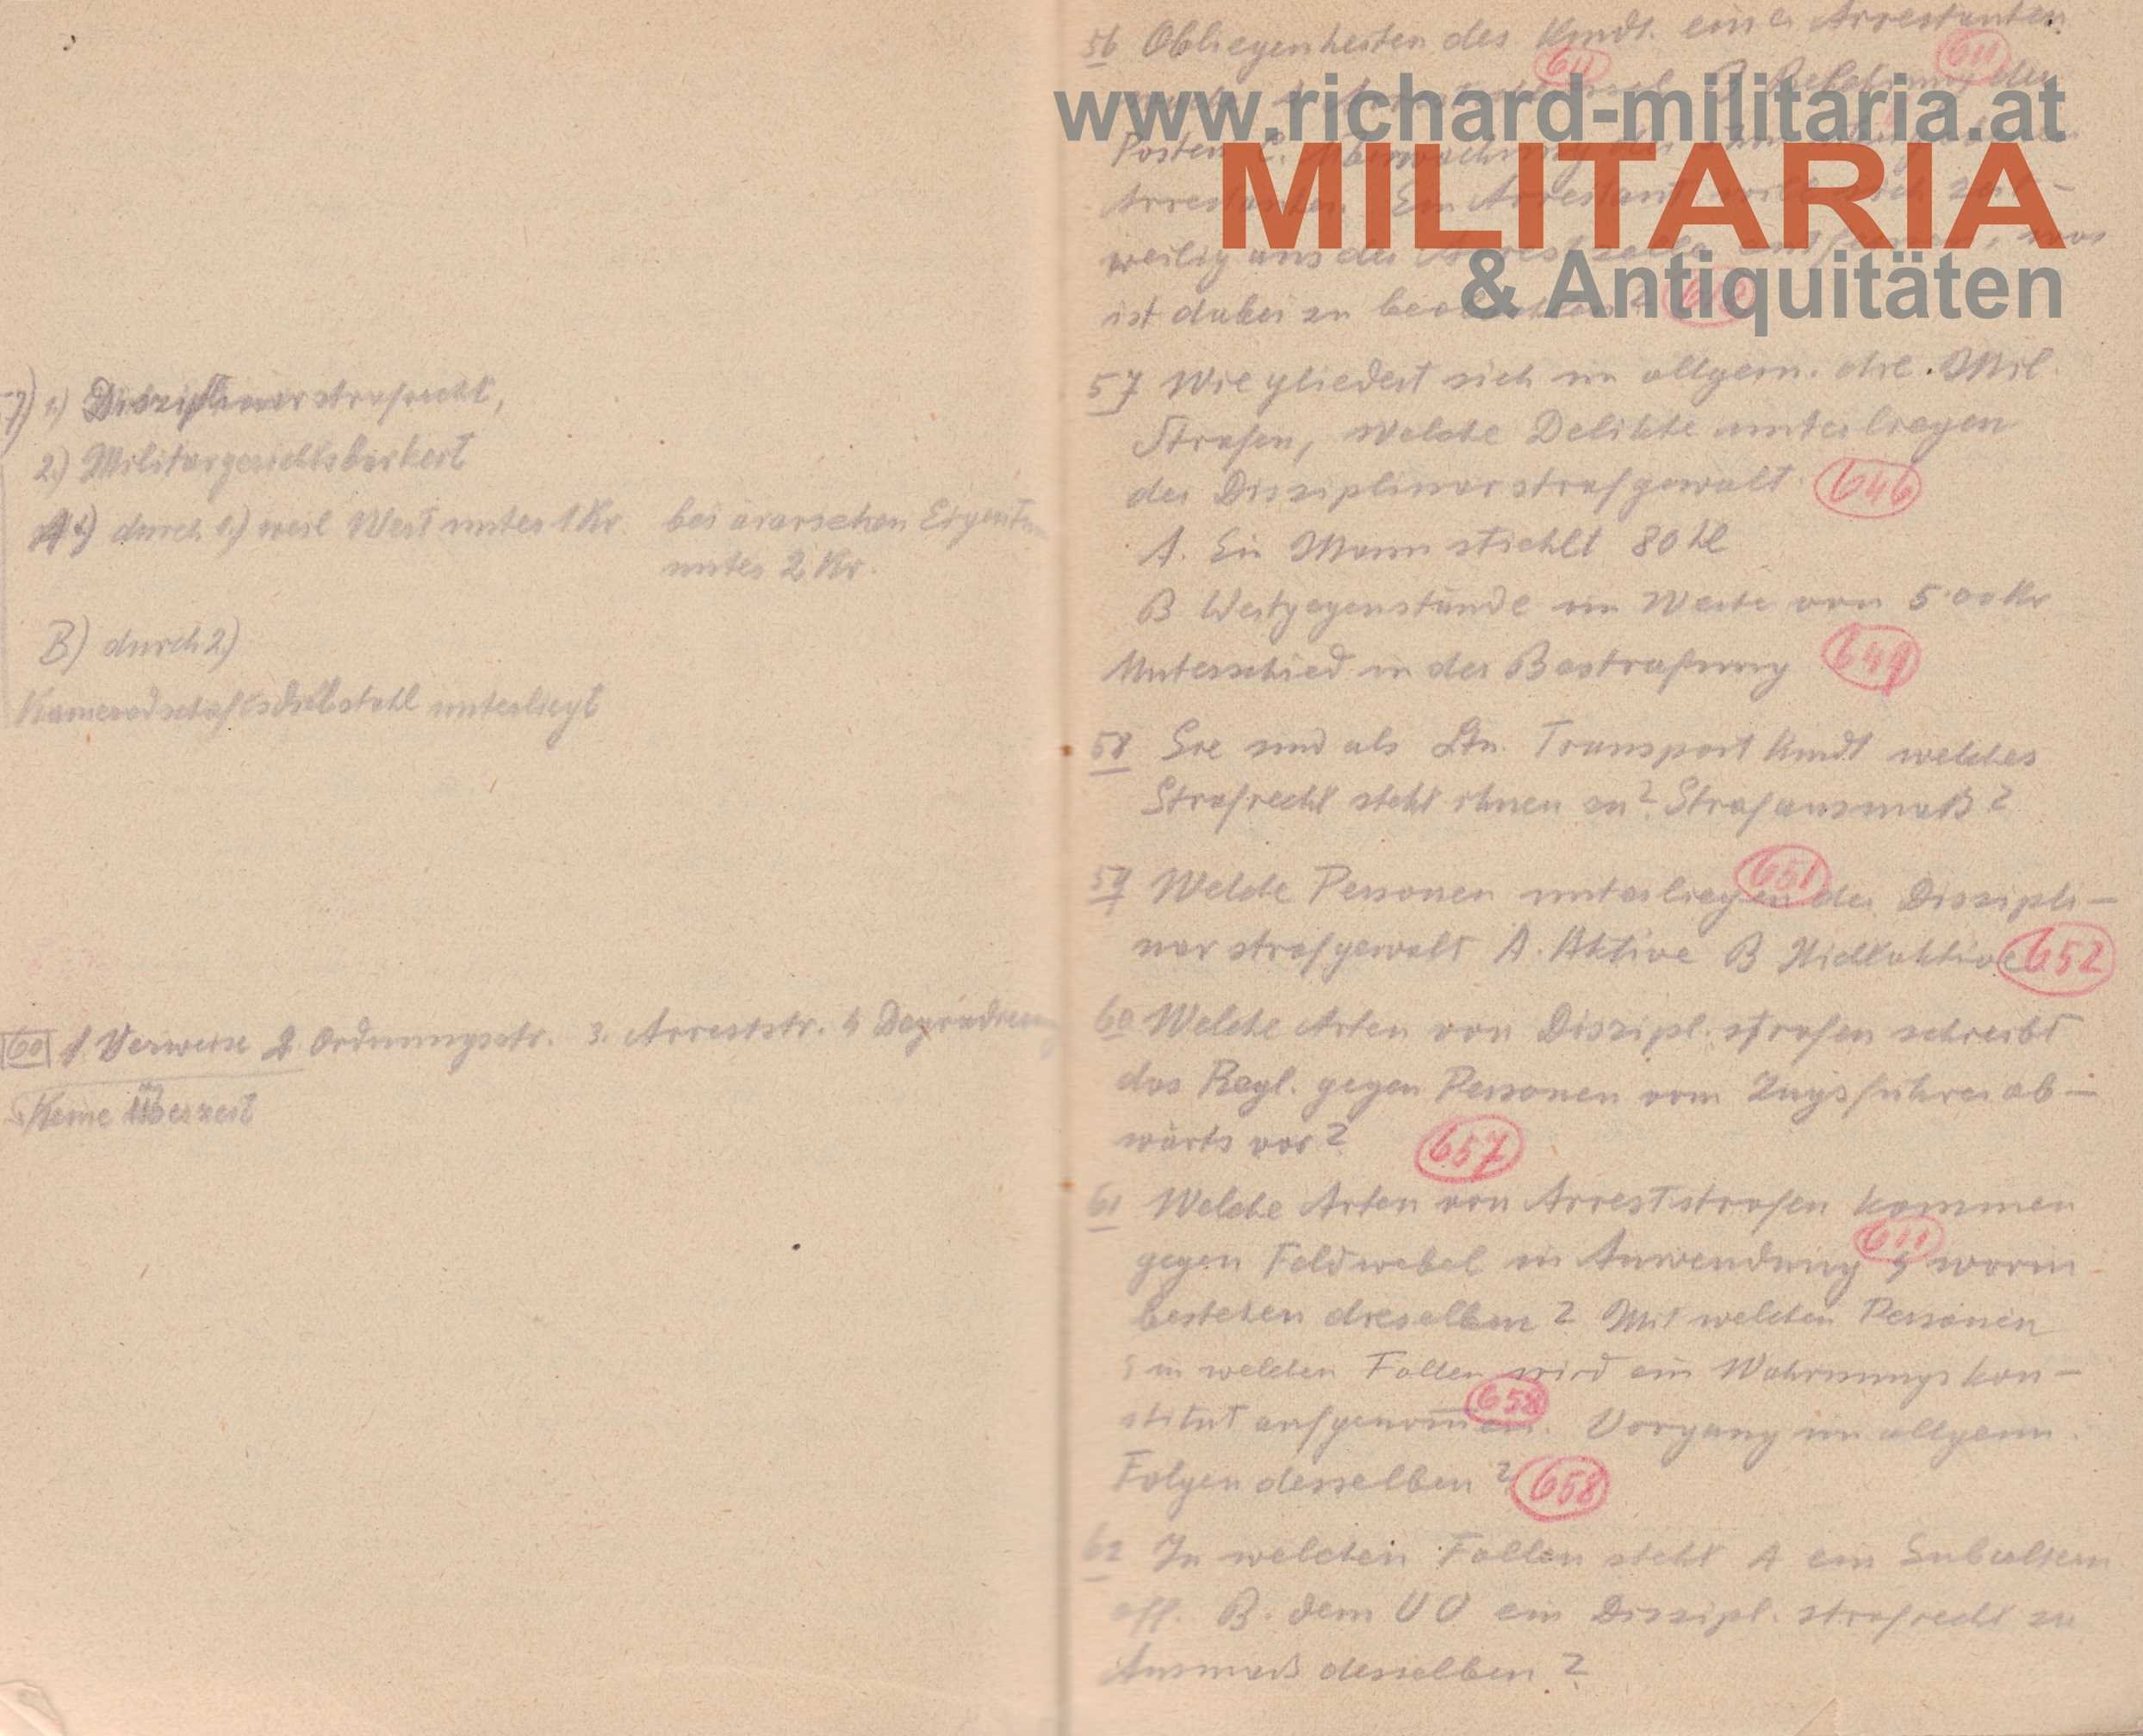 57) 1.) Disziplinarstrafrecht,
2.) Militärgerichtsbarkeit
A) durch 1.) weil Wert unter 1 Kr. bei ärarischen Eigentum
unter 2 Kr.
B) durch 2)
Kameradschaftsdiebstahl unterliegt
60 1. Verweise 2. Ordnungsstr. 3. Arreststr. 4 Degradierung
Keine Überzeit
56 Obliegenheiten des Kmdt. einer Arrestanten
611 611
www.richard-militaria.at
MILITARIA
& Antiquitäten
Posten C. Überwachung der
Arrestanten. Ein Arrestant will sich zeit-
weilig aus der Arrestzelle entfernen, was
ist dabei zu beobachten?
57 Wie gliedert sich im allgem. die Mil.
Strafen, welche Delikte unterliegen
der Disziplinarstrafgewalt 646
A. Ein Mann stiehlt 80 hl
B Wertgegenstände im Werte von 500 Kr
Unterschied in der Bestrafung 649
58 Sie sind als Ltn. Transport Kmdt welches
Strafrecht steht ihnen zu? Strafausmaß?
59 Welche Personen unterliegen der Diszipli-
651
narstrafgewalt A. Aktive B Nichtaktive 652
60 Welche Arten von Diszipl. strafen schreibt
das Regl. gegen Personen vom Zugsführer ab-
wärts vor? 657
61 Welche Arten von Arreststrafen kommen
gegen Feldwebel in Anwendung & worin
bestehen dieselben? Mit welchen Personen
& in welchen Fällen wird ein Wahrnungskon-
658
stitut aufgenom̅en. Vorgang im allgem.
Folgen desselben? 658
62 In welchen Fällen steht A ein Subaltern
off. B. dem UO ein Diszipl. strafrecht zu
Ausmaß desselben?